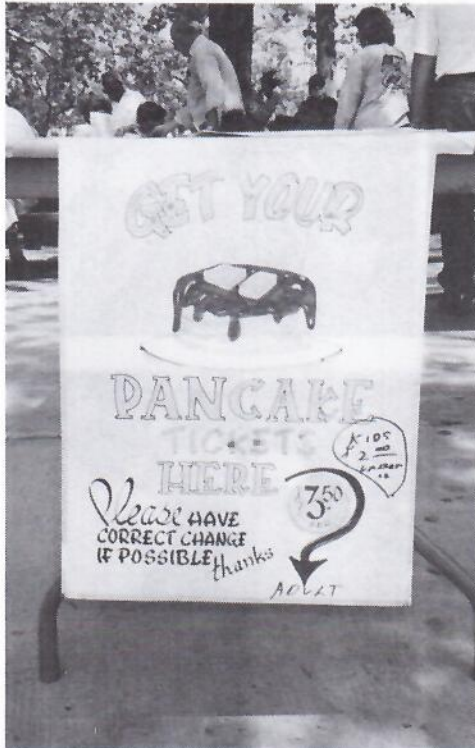 GET YOUR
PANCAKE
TICKETS
HERE
KIDS
$2.00
UNDER
12
$3.50
Please HAVE
CORRECT CHANGE
IF POSSIBLE thanks
ADULT